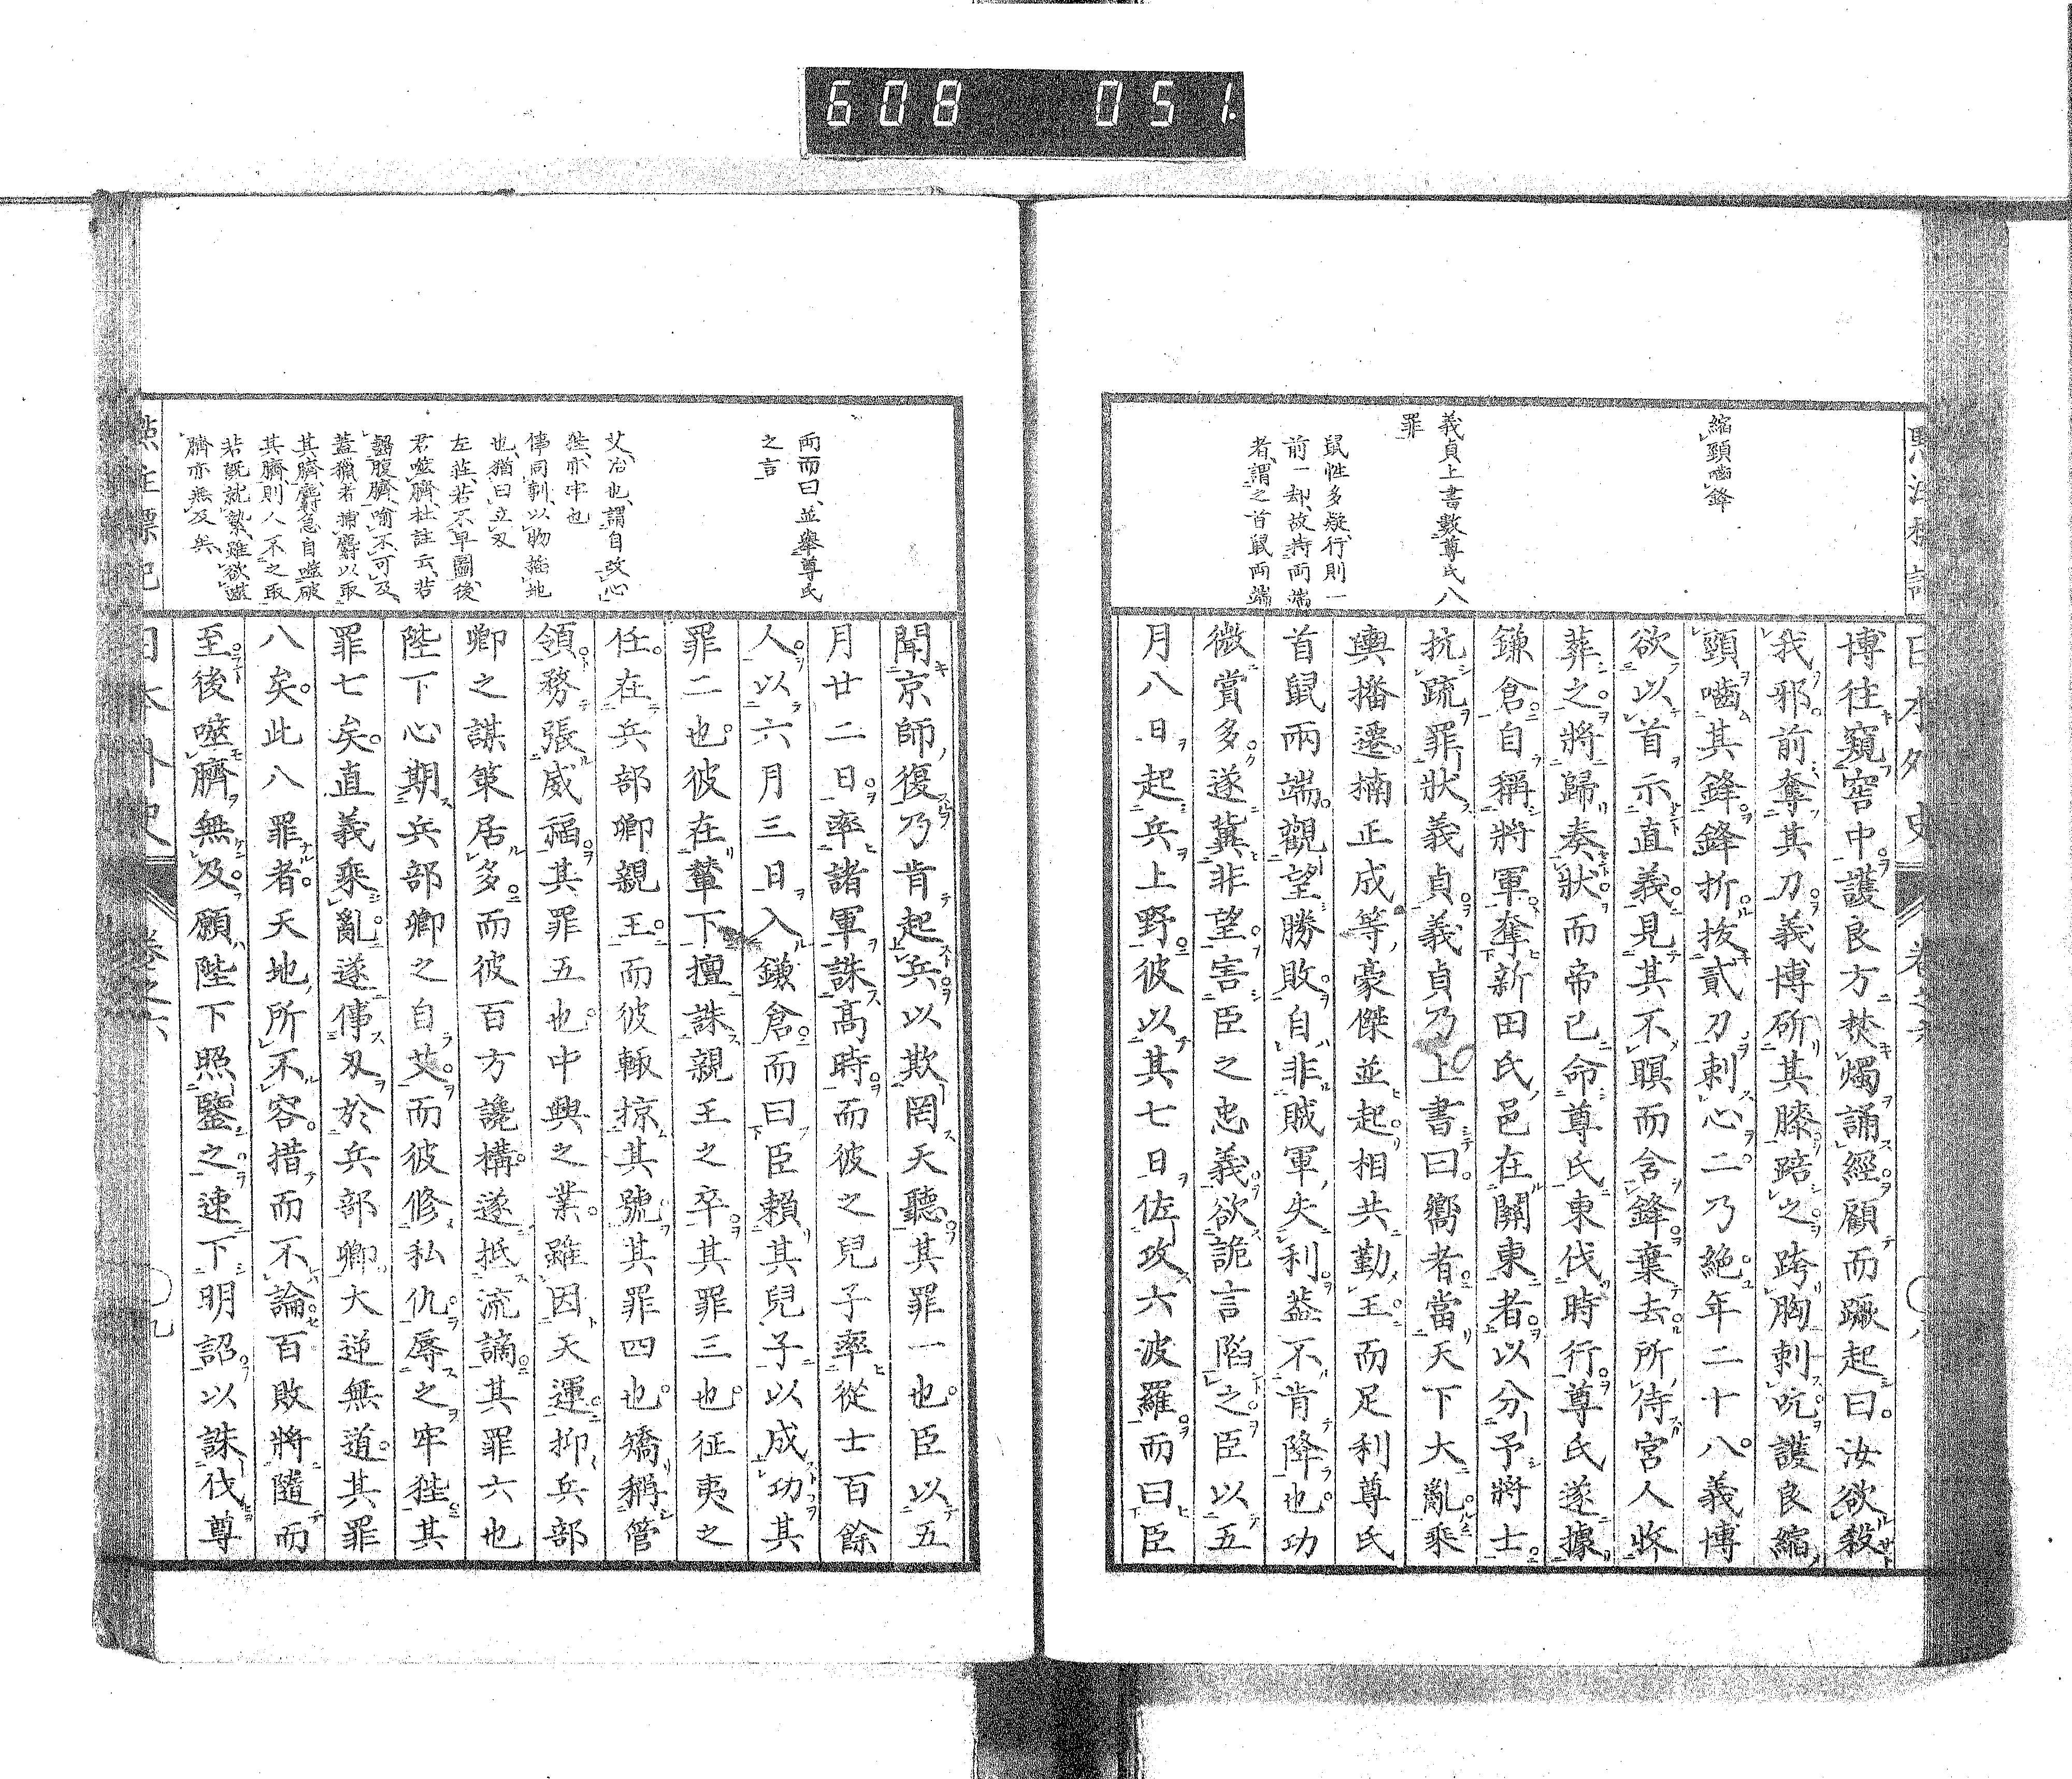 608 051.
縮頸嚙鋒
義貞上書數尊氏八
罪
鼠性多疑、行則一
前一却、故持兩端
者、謂之首鼠兩端
日本外史 卷之六
博往窺窖中。護良方挾燭誦經。顧而蹶起曰。汝欲殺
我邪。前奪其刀。義博斫其膝。踣之。跨胸刺吭。護良縮
頸嚙其鋒。鋒折。拔貳刀刺心二。乃絶。年二十八。義博
欲以首示直義。見其不瞑而含鋒。棄去所、待宮人收
葬之。將歸奏狀。而帝已命尊氏東伐。時行。尊氏遂據
鎌倉。自稱將軍。奪新田氏邑在關東者。以分予將士。
抗疏罪狀義貞。義貞乃上書曰。嚮者。當天下大亂。乘
輿播遷。楠正成等、豪傑並起。相共勤王。而足利尊氏
首鼠兩端。觀望勝敗。自非賊軍失利。蓋不肯降也。功
微賞多。遂冀非望。害臣之忠義。欲詭言陷之。臣以五
月八日起兵上野。彼以其七日佐攻六波羅。而曰臣
兩而曰、並擧尊氏
之言
艾、冶也、謂自改心
狴、亦牢也
倳同剚、以物揷地
也、猶曰立刄
左莊、若不早圖、後
君噬臍、杜註云、若
齧腹臍、喩不可及、
蓋獵者捕麝以取
其臍、麝急自噬破
其臍、則人不之取
若既就縶、雖欲噬
臍亦無及矣、
聞京師復。乃肯起兵。以欺罔天聽。其罪一也。臣以五
月廿二日。率諸軍誅高時。而彼之兒子率從士百餘
人。以六月三日入鎌倉。而曰臣賴其兒子以成功。其
罪二也。彼在輦下。擅誅親王之卒。其罪三也。征夷之
任。在兵部卿親王。而彼輙掠其號。其罪四也。矯稱管
領。務張威福。其罪五也。中興之業。雖因天運。抑兵部
卿之謀策居多。而彼百方讒構。遂抵流謫。其罪六也
陛下心期兵部卿之自艾。而彼修私仇。辱之牢狴。其
罪七矣。直義乘亂。遂倳刄於兵部卿。大逆無道。其罪
八矣。此八罪者。天地所不容。措而不論。百敗將隨而
至。後噬臍無及。願陛下照鑒之。速下明詔。以誅伐尊
點註標記 日本外史 卷之六 九